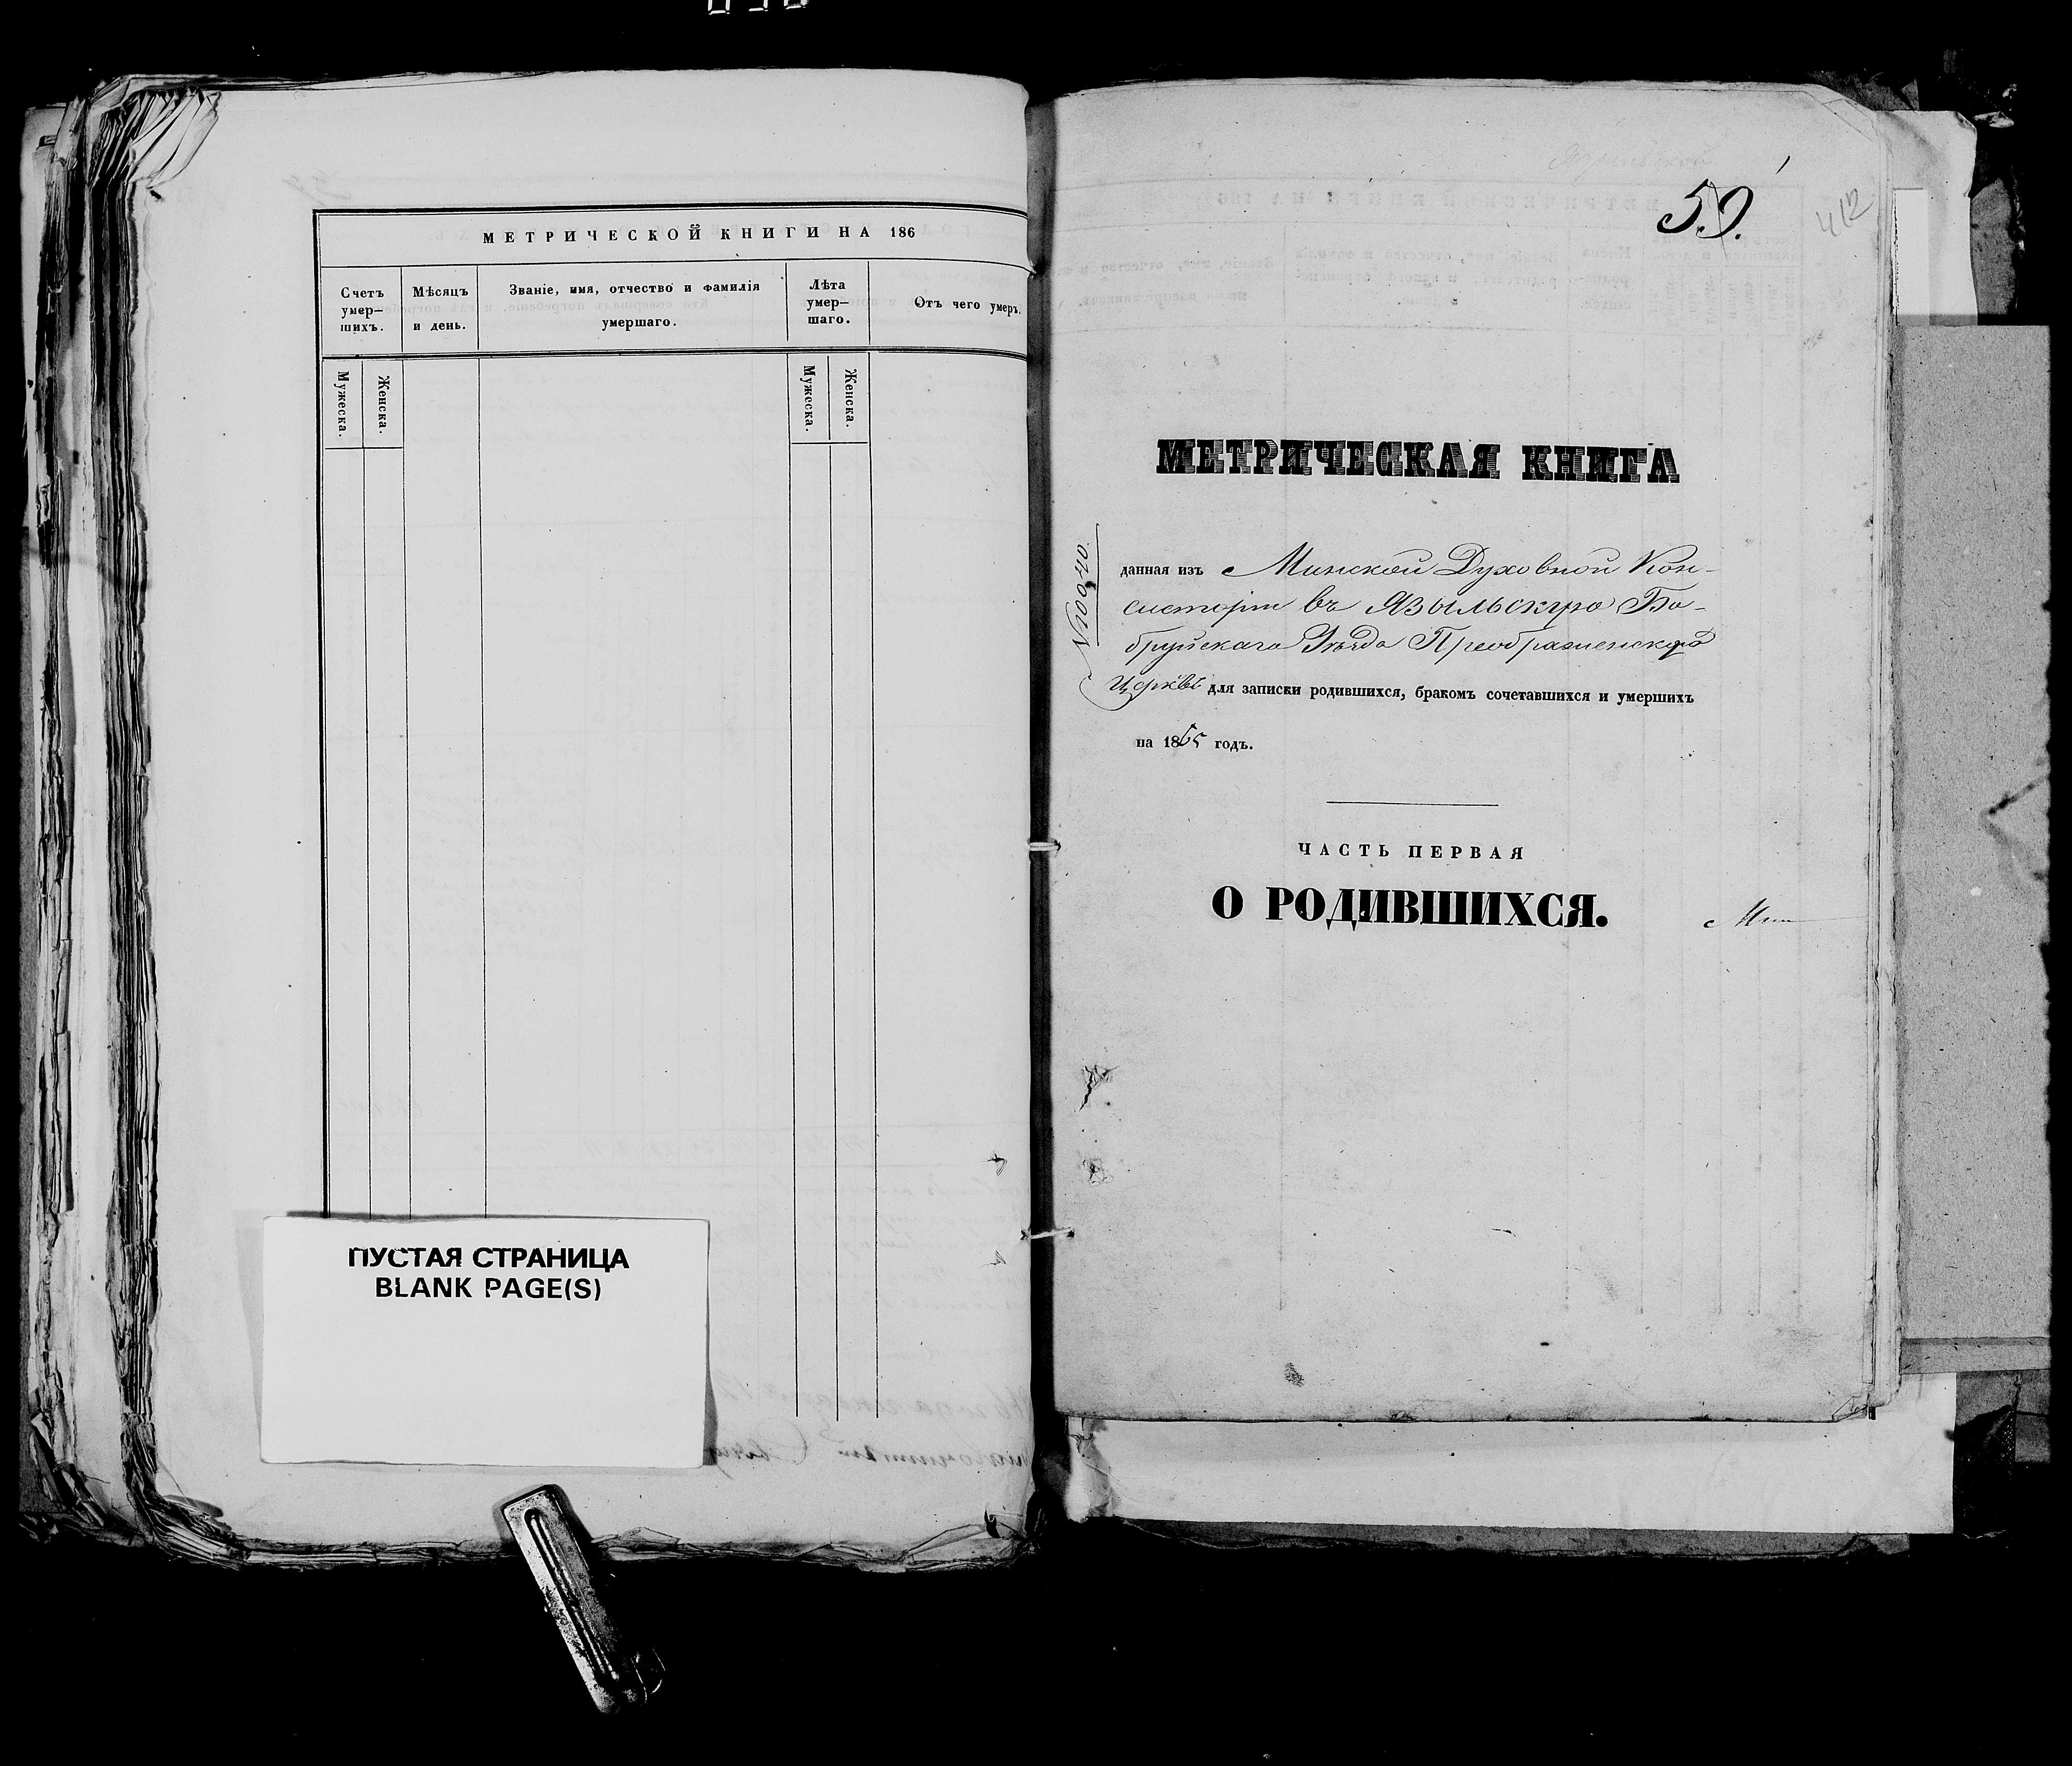 МЕТРИЧЕСКОЙ КНИГИ НА 186
Счетъ умер–шихъ.
Мѣсяцъ и день.
Званіе, имя, отчество и фамилія умершаго.
Лѣта умер–шаго.
Отъ чего умеръ.
Мужеска.
Женска.
Мужеска.
Женска.
ПУСТАЯ СТРАНИЦА
BLANK PAGE(S)
59.
412
МЕТРИЧЕСКАЯ КНИГА
данная изъ Минской Духовной Кон-
систоріи въ Языльскую Бо-
бруйскаго Уѣзда Преображенскую
Церквь для записки родившихся, бракомъ сочетавшихся и умершихъ
на 1865 годъ.
ЧАСТЬ ПЕРВАЯ
О РОДИВШИХСЯ.